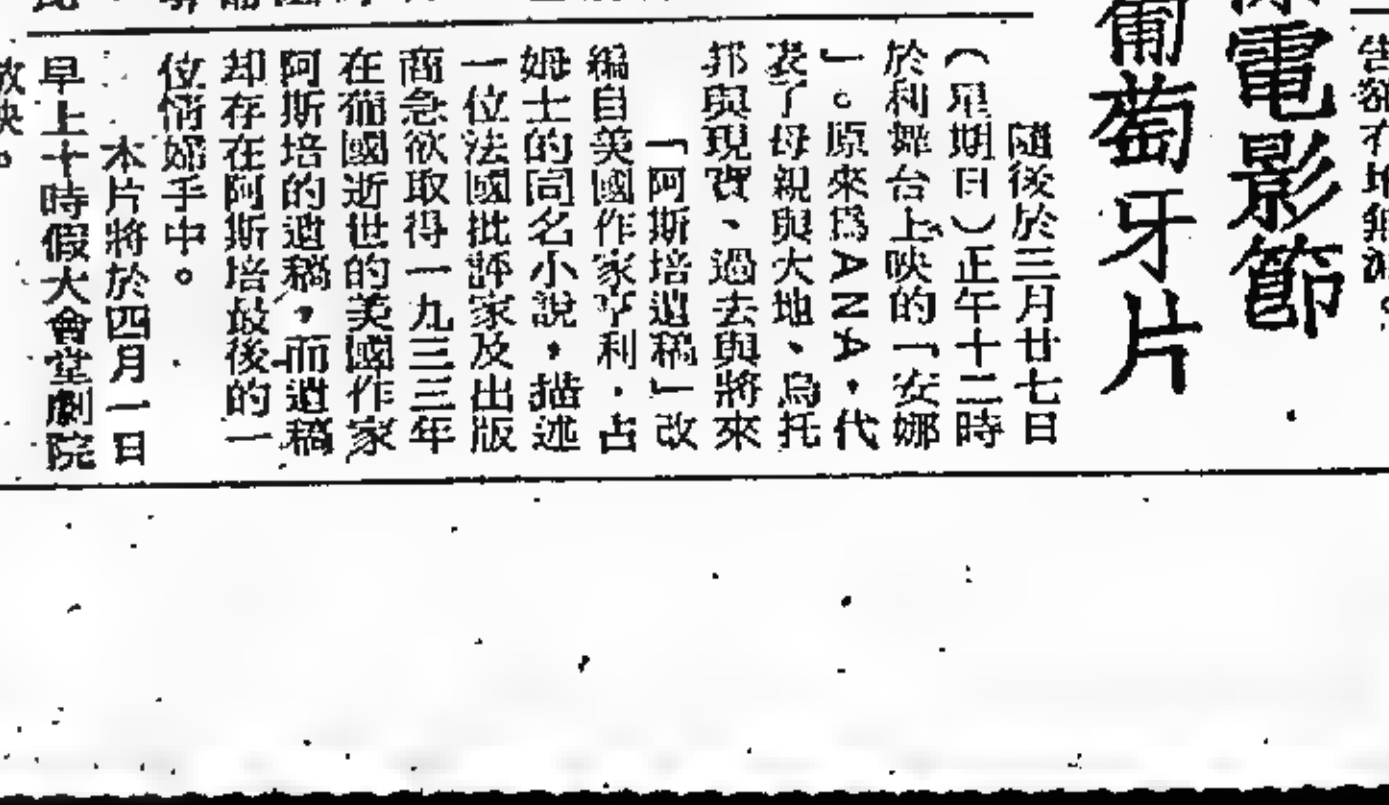 電影節
葡萄牙片
隨後於三月廿七日
（星期日）正午十二時
於利舞台上映的「安娜
」。原來爲ＡＮＡ，代
表了母親與大地、烏托
邦與現實、過去與將來
「阿斯培遺稿」改
編自美國作家亨利．占
姆士的同名小說，描述
一位法國批評家及出版
商急欲取得一九三三年
在葡國逝世的美國作家
阿斯培的遺稿，而遺稿
却存在阿斯培最後的一
位情婦手中。
本片將於四月一日
早上十時假大會堂劇院
放映。